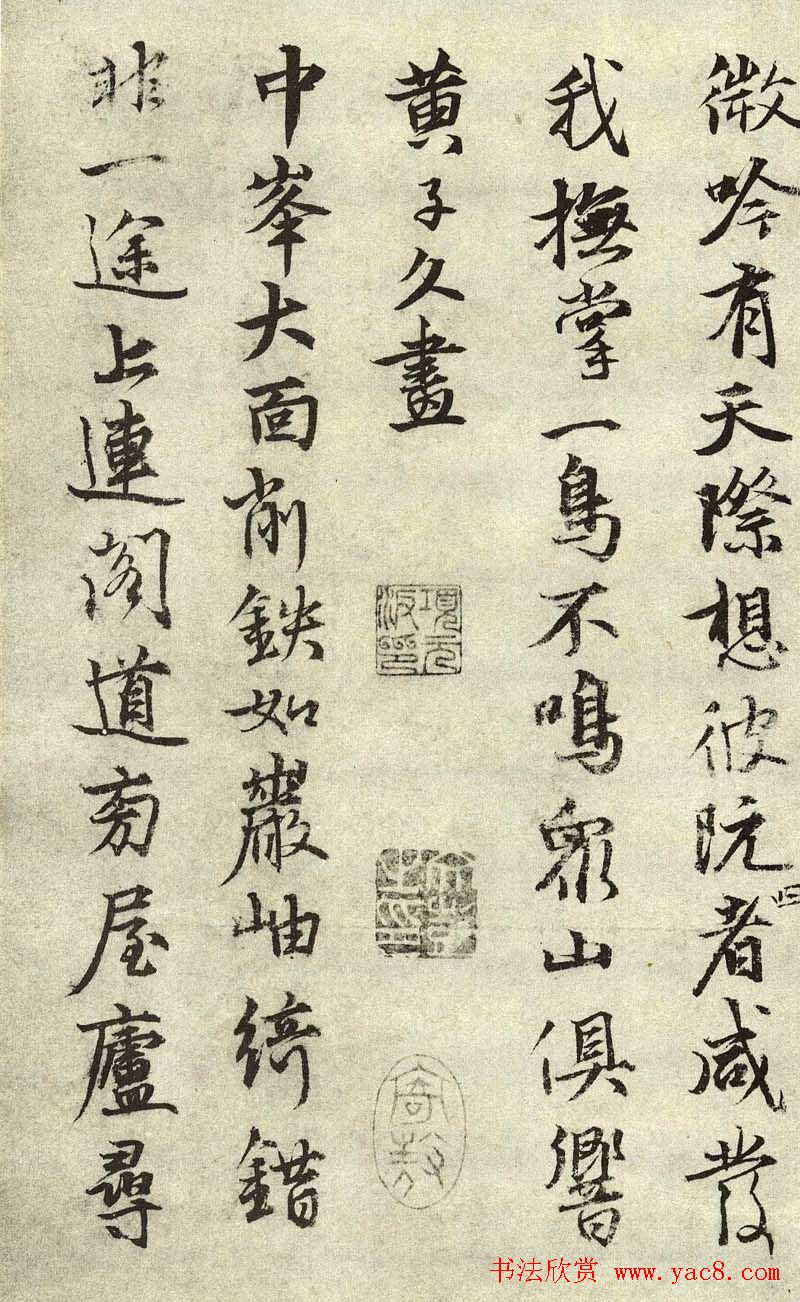 微吟有天際想彼阮者咸發
我撫掌一鳥不鳴眾山俱響
黃子久畫
項元汴印
寄敖
中峯大面削鉄如巖岫綺錯
非一途上連閣道旁屋廬尋
书法欣赏 www.yac8.com